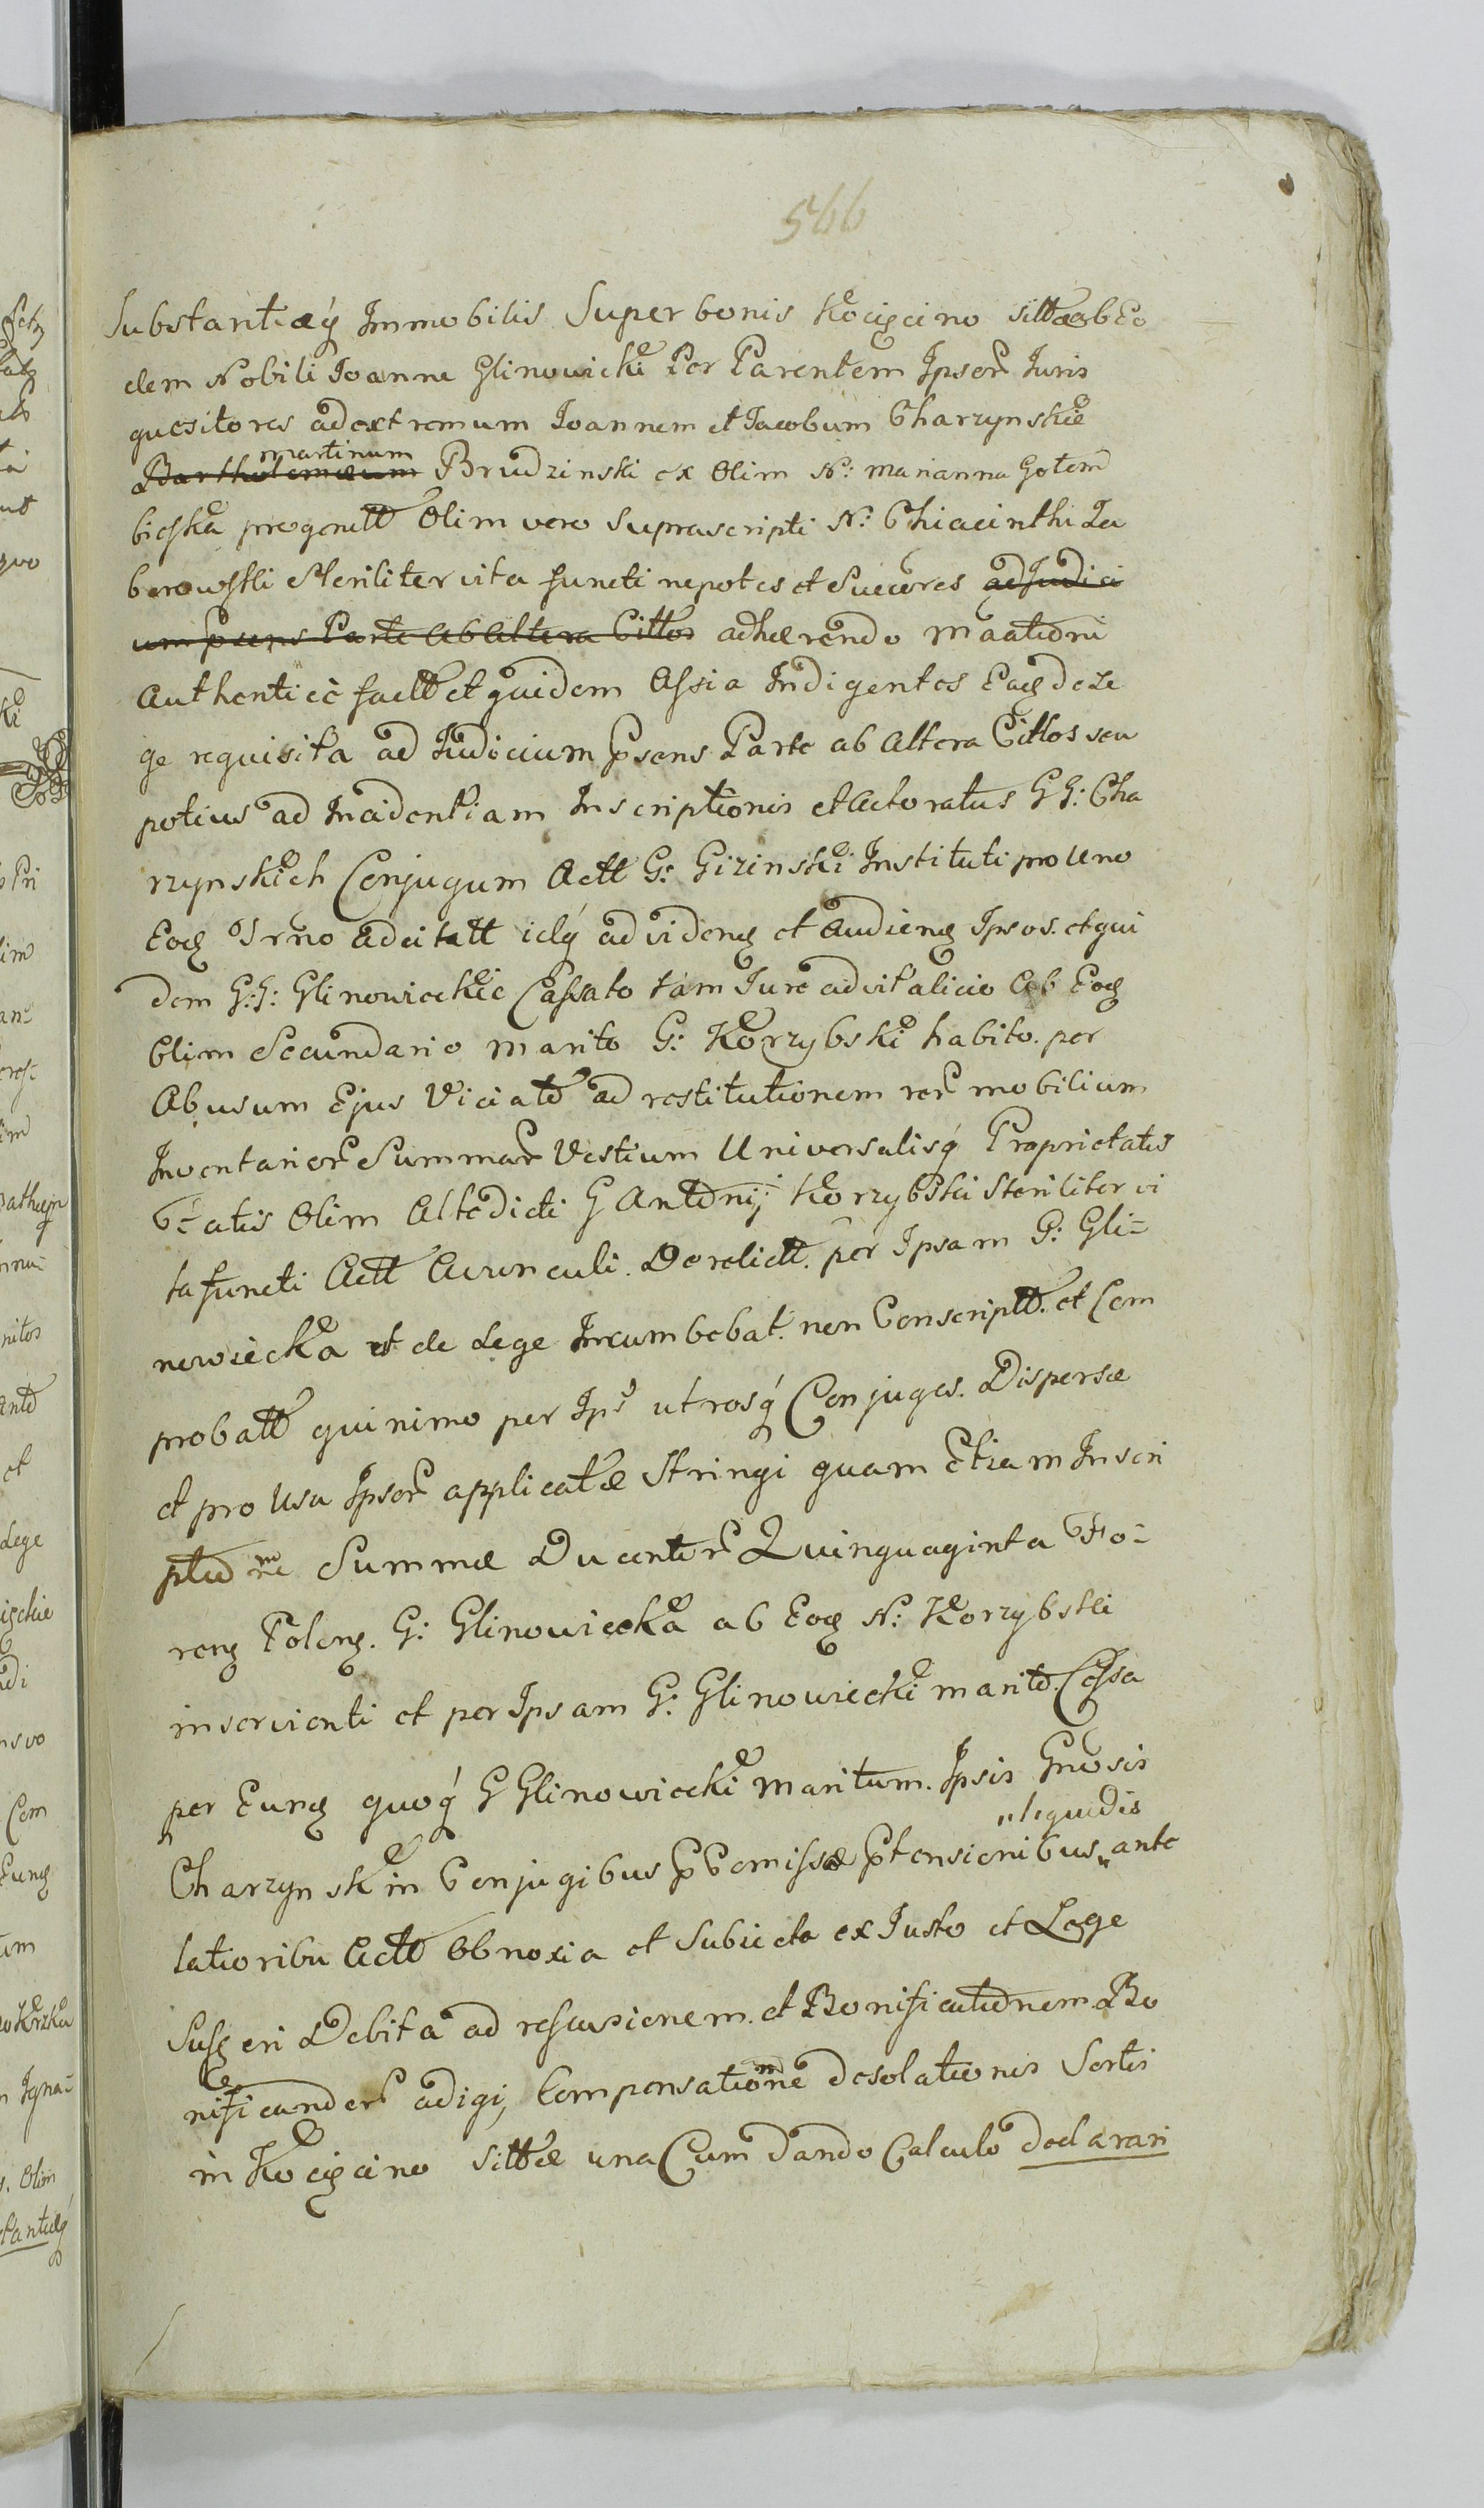 566
Substantiæq́ Immobilis Super bonis Kocięcino sittæ ab Eo
dem Nobili Ioanne Glinowicki Per Parentem Ipsor Iuris
quesitores ad extremum Ioannem et Iacobum Charzynskie
martinum
Bartholomæum Brudzinski ex Olim N: Marianna Gotem
bieska progenitt Olim vero Suprascripti N: Chiacinthi Za
borowski Steriliter vita functi nepotes et Succores ad Iudici
um Psens Parte ab altera Cittos adhærendo Maationi
Authentice factt et quidem Assia Indigentes Eaq de Le
ge requisita ad Iudicium Psens Parte ab Altera Cittos seu
potius ad Incidentiam Inscriptionis et Actoratus GG: Cha
rzynskich Conjugum Actt G: Gizinski Instituti pro Uno
Eoq Trno adcitatt idq́ ad videnq et Audienq Ipsos. et qui
dem G:G: Glinowieckie Cassato tam Iure advitalicio ab Eoq
Olim Secundario marito G: Korzybski habito. per
Abusum Ejus Viciato ad restitutionem rer mobilium
Inventarior Summar Vestium Universalisq́ Proprietatis
Olim Altedicti G Antonij Korzybski Steriliter vi
ta functi Actt Avunculi. Derelictt. per Ipsam G: Gli=
nowiecka ut de Lege Incumbebat. non Conscriptt. et Com
probatt quinimo per Ips utrosq́ Conjuges. Dispersæ
et pro Usu Ipsor applicatæ Stringi quam Etiam Inscri
ptione Summæ Ducentor Quinquaginta Flo=
renq Polonq. G: Glinowiecka ab Eoq N: Korzybski
inservienti et per Ipsam G: Glinowiecki marito. Cessa
per Eunq quoq́ G Glinowiecki Maritum. Ipsis Gnosis
„liquidis
Charzynskim Conjugibus Ptensionibus„ ante
lationibu Actt Obnoxia et Subiecta ex Iusto et Lege
Debita ad refusionem. et Bonificationem. Bo
nificandor adigi, Compensatione desolationis Sortis
in Kocięcino Sittæ una Cum Dando Calculo declarari